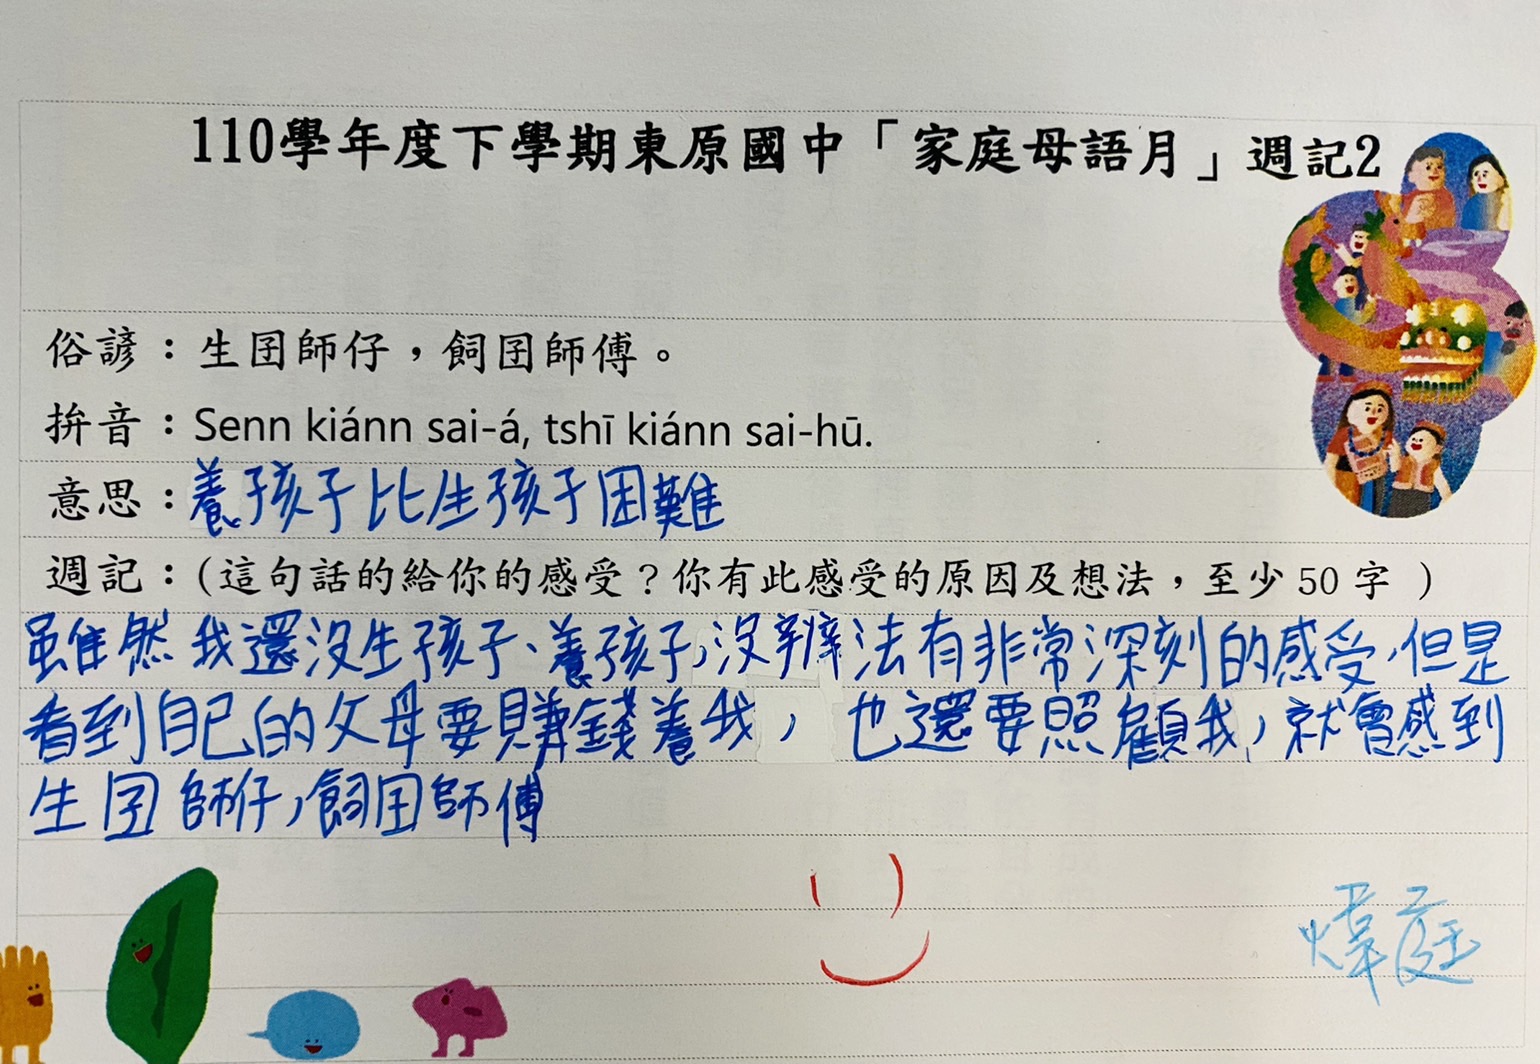 110學年度下學期東原國中「家庭母語月」週記2
俗諺：生囝師仔，飼囝師傅。
拼音：Senn kiánn sai-á, tshī kiánn sai-hū.
意思：養孩子比生孩子困難
週記：(這句話的給你的感受？你有此感受的原因及想法，至少50字 )
雖然我還沒生孩子、養孩子，沒辦法有非常深刻的感受，但是
看到自己的父母要賺錢養我，也還要照顧我，就會感到
生囝師仔，飼囝師傅
煒庭